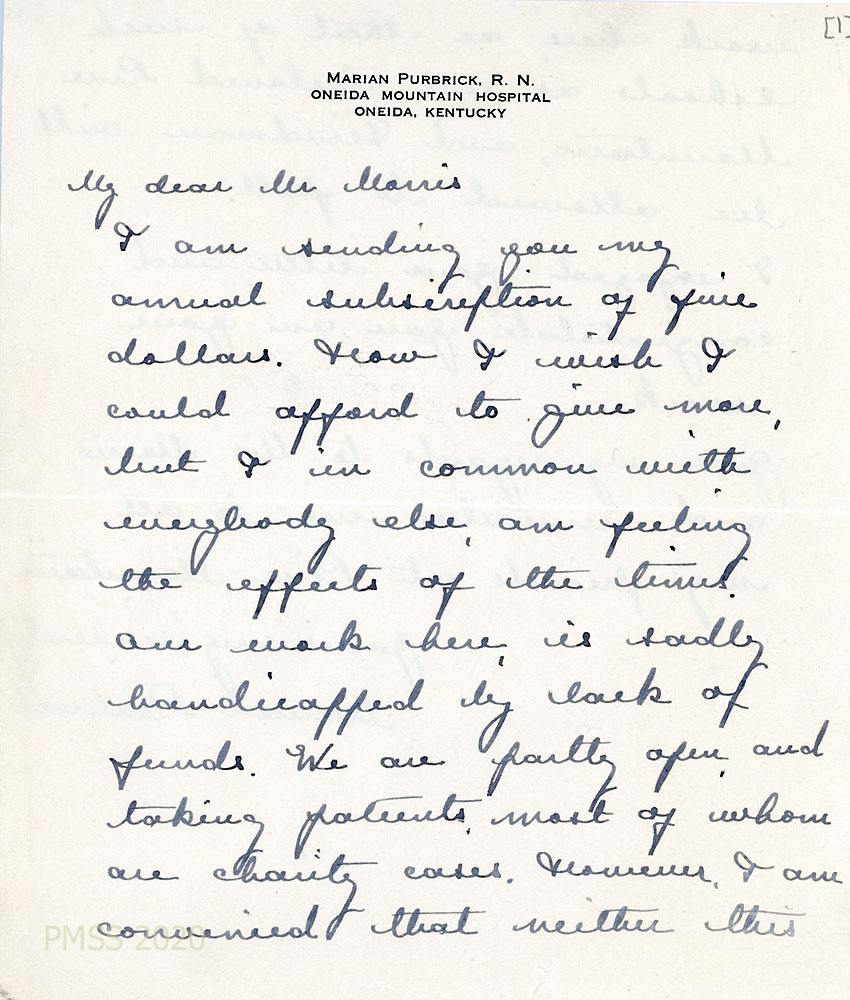 [1]
MARIAN PURBRICK, R. N.
ONEIDA MOUNTAIN HOSPITAL
ONEIDA, KENTUCKY
My dear Mr Morris
I am sending you my
annual subscription of five
dollars. How I wish I
could afford to give more,
but I in common with
everybody else, am feeling
the effects of the times.
our work here, is sadly
handicapped by lack of
funds. We are partly open, and
taking patients, most of whom
are charity cases. However, I am
convinced that neither this
PMSS 2020